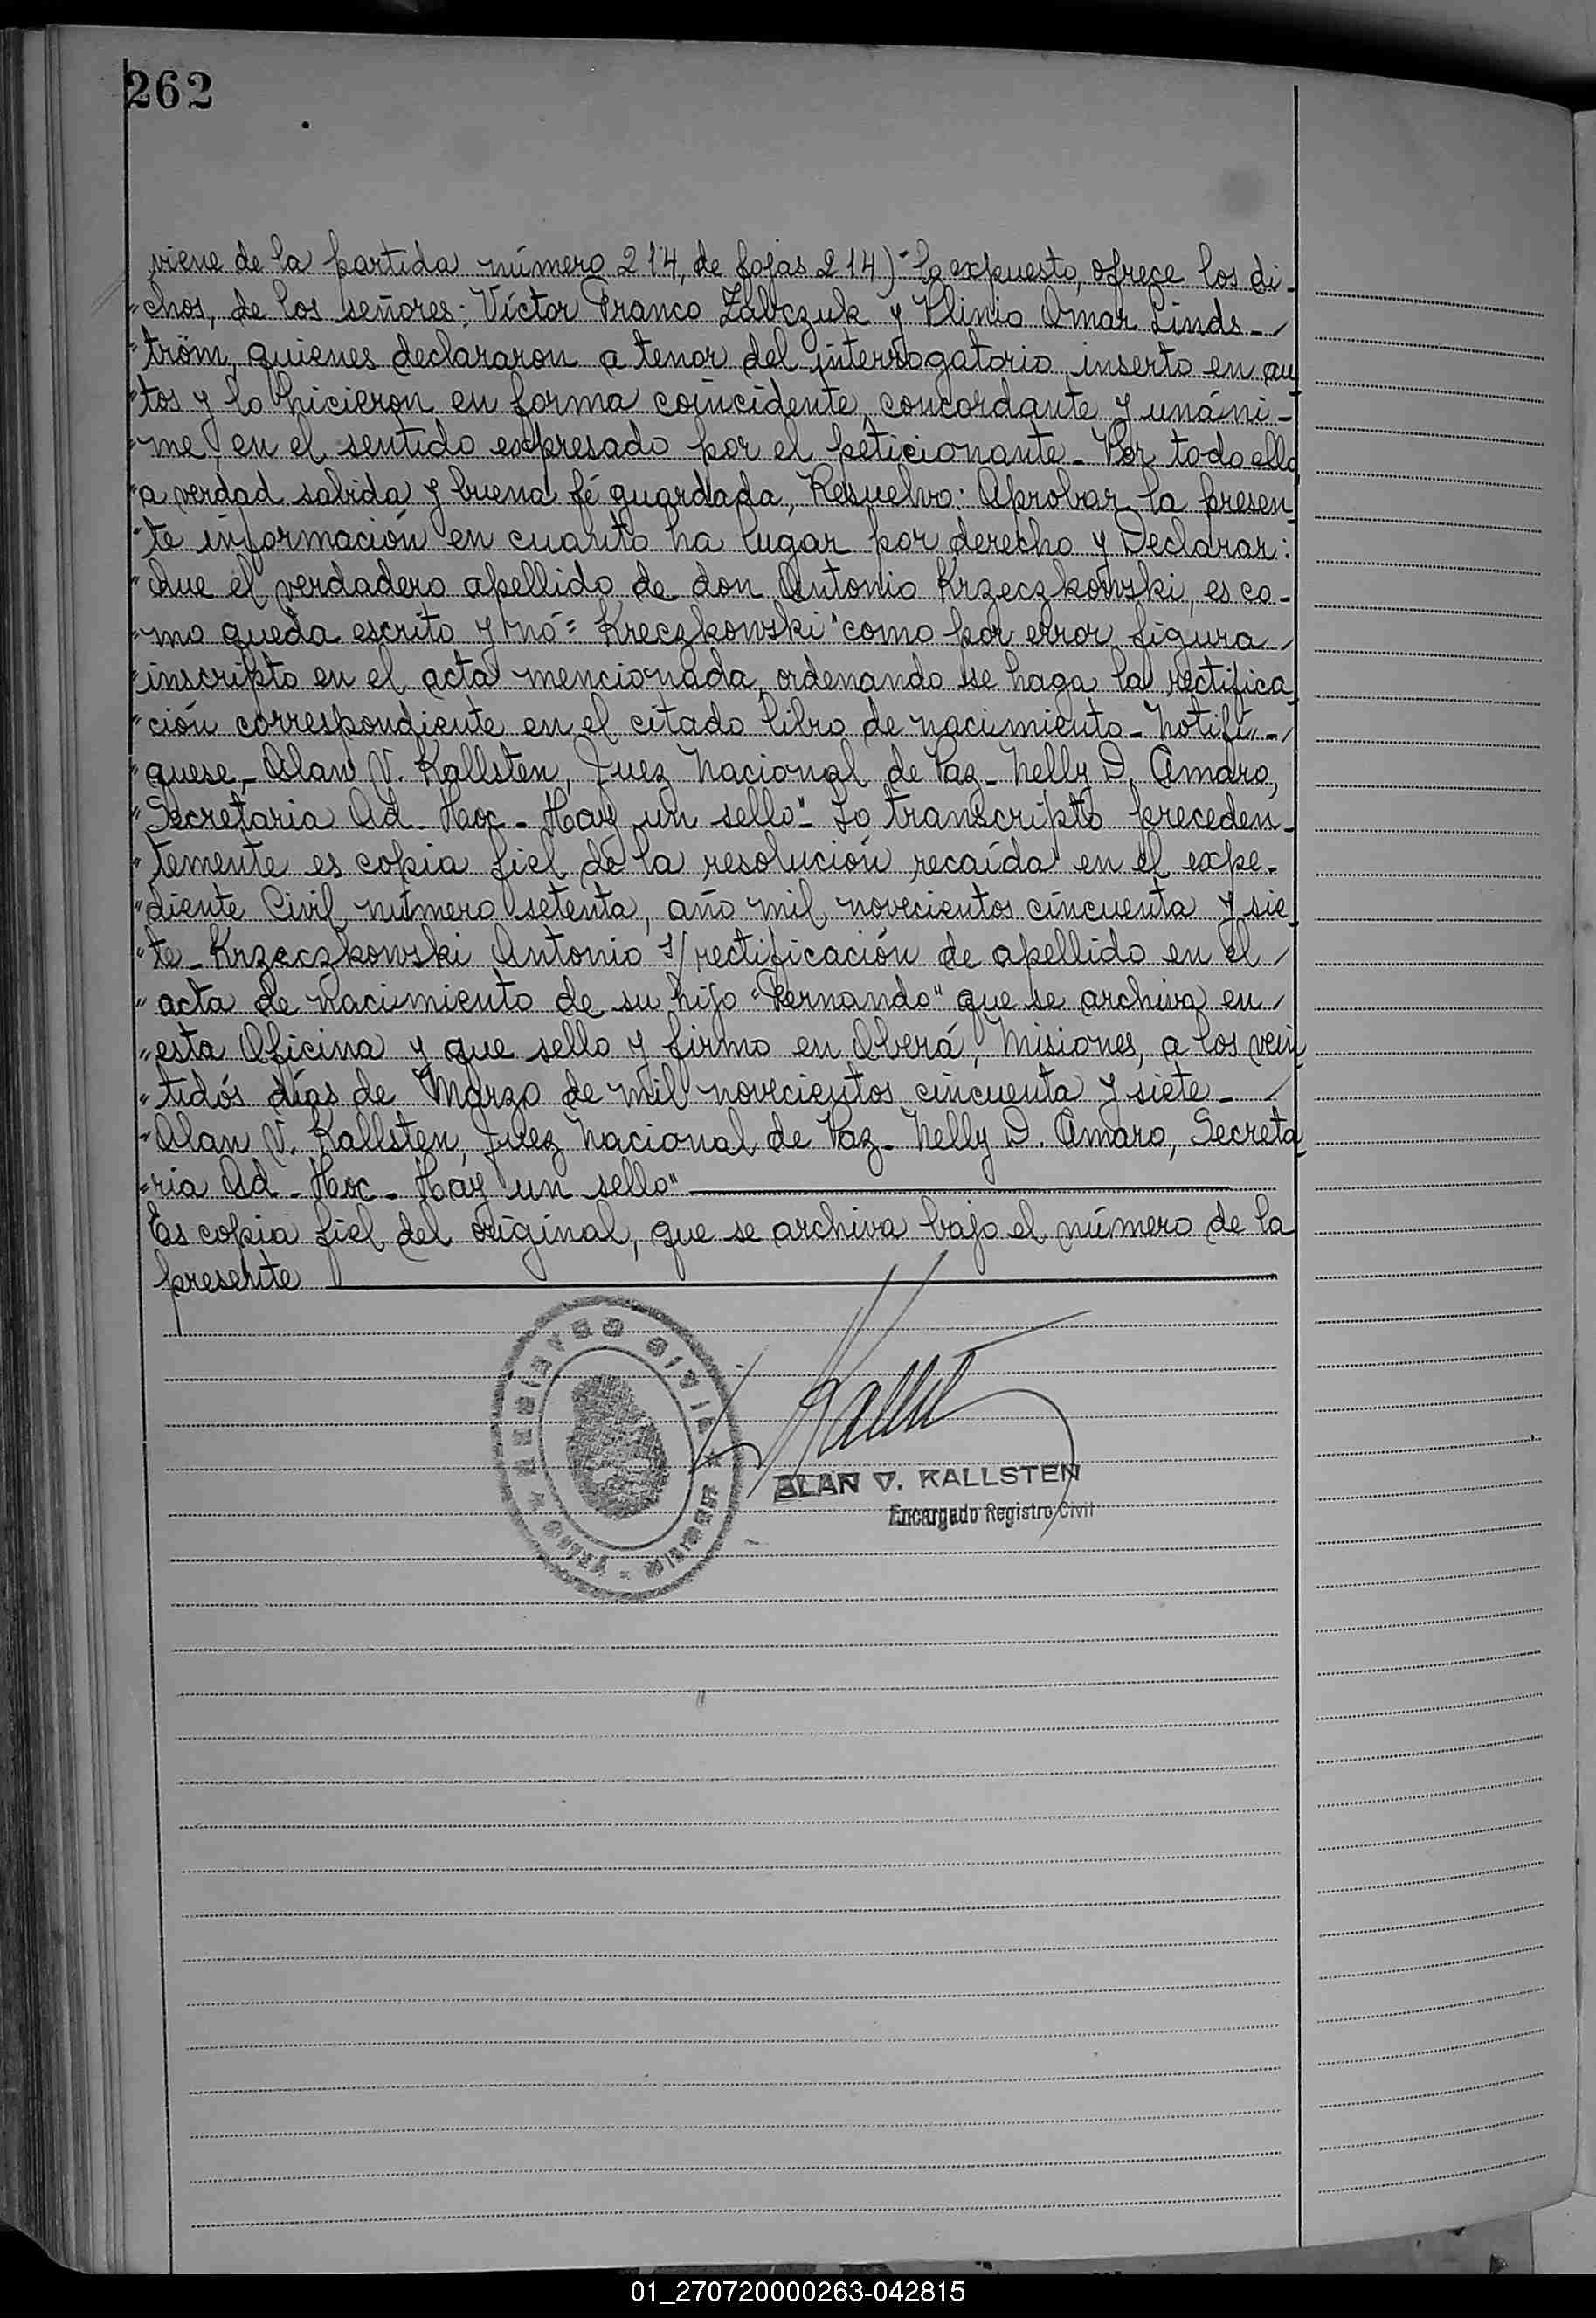 262
viene de la partida número 214, de fojas 214)-"lo expuesto, ofrece los di-
"chos, de los señores: Víctor Franco Zabczuk y Plinio Omar Linds-/
"tröm, quienes declararon a tenor del interrogatorio inserto en au
"tos y lo hicieron en forma coincidente, concordante y unáni-
"me, en el sentido expresado por el peticionante- Por todo ello
"a verdad sabida y buena fé guardada, Resuelvo: Aprobar la presen
"te información en cuanto ha lugar por derecho y Declarar:
"Que el verdadero apellido de don Antonio Krzeczkowski, es co-
"mo queda escrito y nó "Kreczkowski" como por error figura /
"inscripto en el acta mencionada, ordenando se haga la rectifica
"ción correspondiente en el citado libro de nacimiento- Notifí-/
"quese,- Alan V. Kallsten, Juez Nacional de Paz- Nelly D. Amaro,
"Secretaria Ad-Hoc- Hay un sello"- Lo transcripto preceden-
"temente es copia fiel de la resolución recaída en el expe-
"diente Civil número setenta, año mil novecientos cincuenta y sie
"te- Krzeczkowski Antonio s/rectificación de apellido en el /
"acta de nacimiento de su hijo "Fernando" que se archiva en /
"esta Oficina y que sello y firmo en Oberá, Misiones, a los vein
"tidós días de Marzo de mil novecientos cincuenta y siete- /
"Alan V. Kallsten, Juez Nacional de Paz- Nelly D. Amaro, Secreta
"ria Ad-Hoc- Hay un sello"
Es copia fiel del original, que se archiva bajo el número de la
presente
REGISTRO CIVIL
ALAN V. KALLSTEN
Encargado Registro Civil
01_270720000263-042815